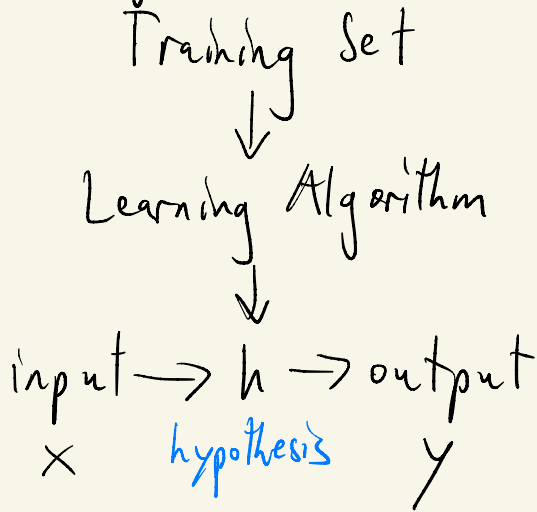 Training Set
Learning Algorithm
input → h → output
x hypothesis y